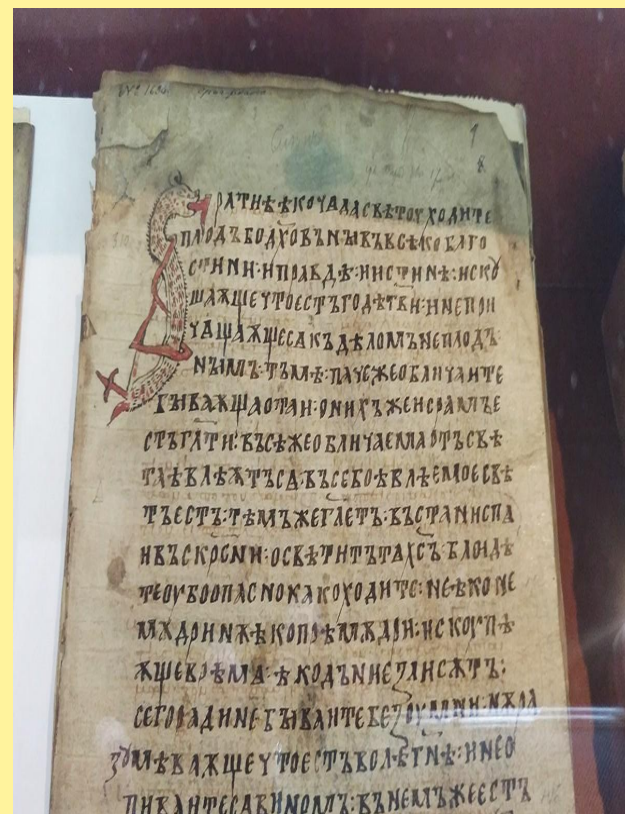 РАТИѢ ꙖКО ЧАДА СВѢТОУ ХОДИТЕ
ПЛОДЪ БО ДХОВЪНЫ ВЪ ВСѢКО БЛГО
СТИНИ · И ПРАВДѢ · И ИСТИНѢ · ИСКОУ
ШАѪЩЕ ЧТО ЕСТЪ ГОДѢ ГВИ · И НЕ ПРИ
ЧАЩАѪЩЕ СѦ КЪ ДѢЛОМЪ НЕПЛОДЪ
НЫМЪ · ТЪМѢ · ЖЕ ОБЛИЧАИТЕ
БЫВАѪЩАꙖ ОТАИ · О НИХЪ ЖЕ СРАМЪ Е
СТЪ ГЛТИ · ВЪСѢ ЖЕ ОБЛИЧАЕМАꙖ ОТЪ СВѢ
ТА ꙖВЛѢѪТЪ СѦ · ВЪСЕ БО ꙖВЛѢЕМОЕ СВѢ
ТЪ ЕСТЪ · ТѢМЪ ЖЕ ГЛЕТЪ · ВЪСТАНИ СПѦ
И ВЪСКРСНИ · ОСВѢТИТЪ ТѦ ХСЪ · БЛЮДѢ
ТЕ ОУБО ОПАСНО КАКО ХОДИТЕ · НЕ ꙖКО НЕ
МѪДРИ НѪ ꙖКО ПРѢМѪДРИ · ИСКОУПѢ
ѪЩЕ ВРѢМѦ · ꙖКО ДЪНИЕ ЗЛИ СѪТЪ ·
СЕГО РАДИ НЕ БЫВАИТЕ БЕЗОУМЬНИ · НѪ РА
ЗОУМѢВАѪЩЕ ЧТО ЕСТЪ ВОЛѢ ГНѢ · И НЕ О
ПИВАИТЕ СѦ ВИНОМЪ · ВЪ НЕМЪ ЖЕ ЕСТЪ